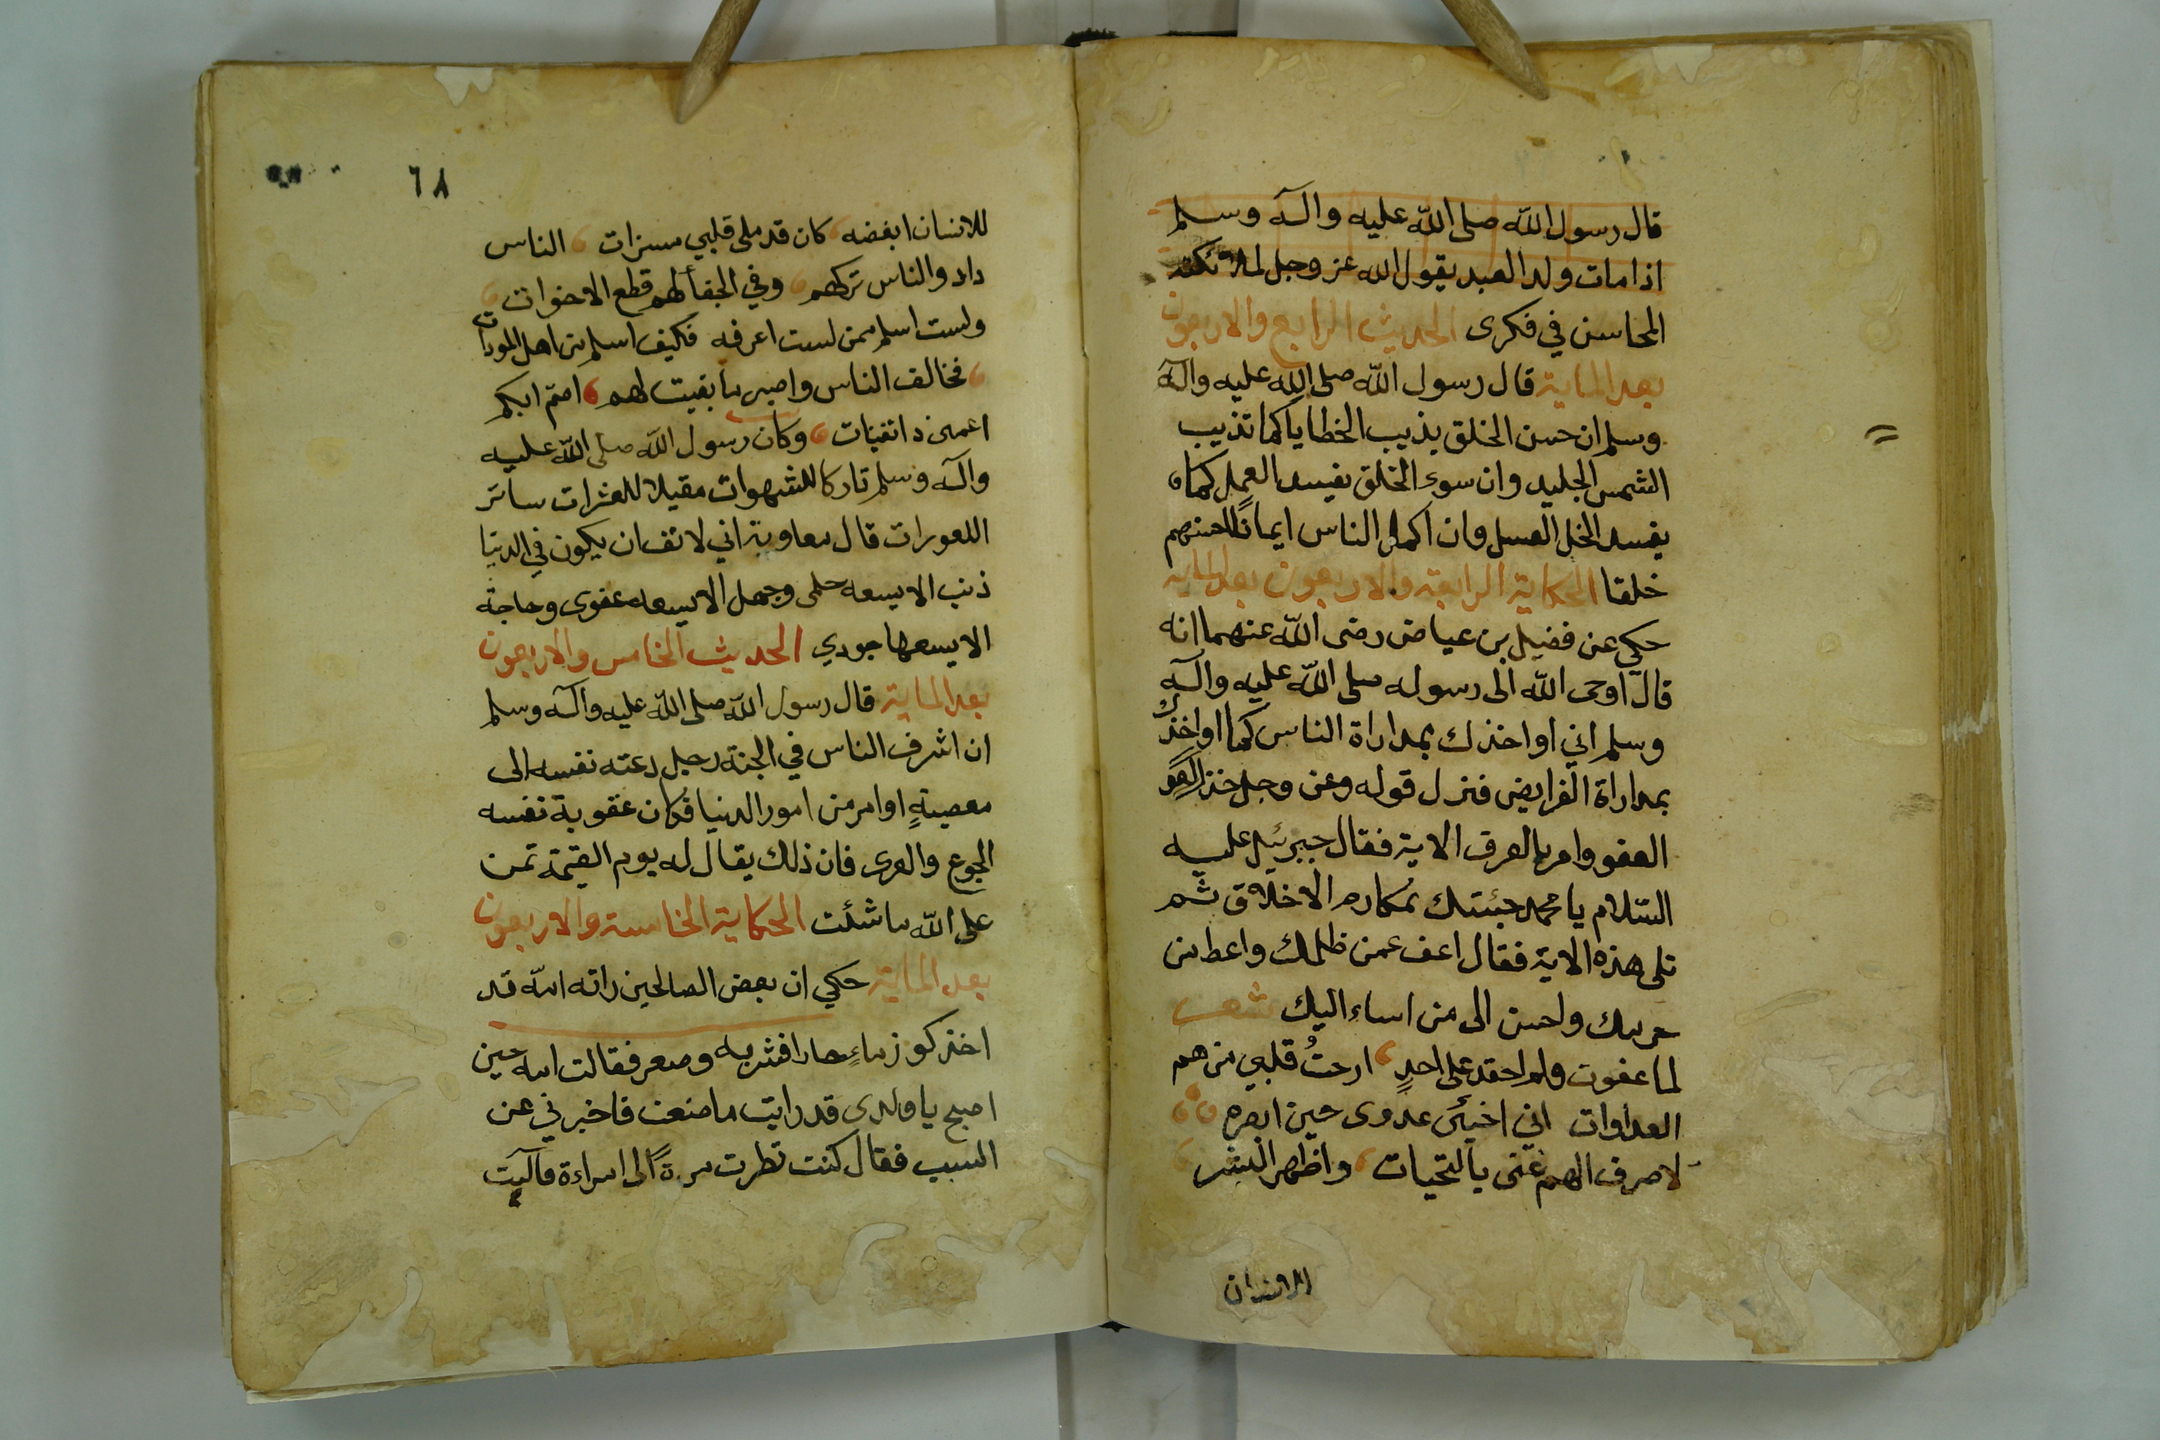 قال رسول الله صلى الله عليه وآله وسلم
اذا مات ولد العبد يقول الله عز وجل
المحاسن في فكرى الحديث الرابع والاربعون
بعد الماية قال رسول الله صلى الله عليه وآله
وسلم ان حسن الخلق يذيب الخطايا كما تذيب
الشمس الجليد وان سوء الخلق يفسد العمل كما
يفسد الخل العسل وان اكمل الناس ايمانًا احسنهم
خلقا الحكاية الرابعة والاربعون بعد الماية
حكي عن فضيل بن عياض رضى الله عنهما انه
قال اوحى الله الى رسوله صلى الله عليه وآله
وسلم اني اواخذك بمداراة الناس كما اواخذك
بمداراة الفرايض فنزل قوله وعن وجل خذ العفو
العفو وامر بالعرف الاية فقال جبرئيل عليه
السلام يا محمد جئتك بمكارم الاخلاق ثم
تلى هذه الاية فقال اعف عمن ظلمك واعط من
حرمك واحسن الى من اساء اليك شعر
لما عفوت ولم احقد على احدٍ ارحتُ قلبي من هم
العداوات اني احيئ عدوى حين ابصره
لاصرف الهم عني بالتحيات واظهر البشر
للانسان
٦٨
للانسان ابغضه كان قد ملى قلبي مسرات الناس
داد والناس تركهم وفي الجفأ لهم قطع الاخوات
ولست اسلم ممن لست اعرفه فكيف اسلم من اهل المودات
فخالف الناس واصبر ما بقيت لهم اصم ابكم
اعمى ذا تقيات وكان رسول الله صلى الله عليه
وآله وسلم تاركا للشهوات مقيلا للعثرات ساتر
اللعورات قال معاوية اني لانف ان يكون في الدنيا
ذنب الا يسعه حلمى وجهل الا يسعه عفوى وحاجة
الا يسعها جودي الحديث الخامس والاربعون
بعد الماية قال رسول الله صلى الله عليه وآله وسلم
ان اشرف الناس في الجنة رجل دعته نفسه الى
معصيةٍ او امر من امور الدنيا فكان عقوبة نفسه
الجوع والعرى فان ذلك يقال له يوم القيمة تمن
على الله ما شئت الحكاية الخامسة والاربعون
بعد الماية حكي ان بعض الصالحين راته امه قد
اخذ كوز ماءٍ حار افشربه وصعر فقالت امه حين
اصبح يا ولدى قد رايت ما صنعت فاخبرني عن
السبب فقال كنت نظرت مرةً الى امراءة فآليت